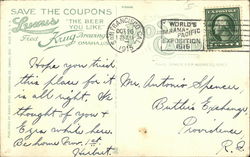 SAVE THE COUPONS
"THE BEER
YOU LIKE"
Fred Krug Brewing
OMAHA, U.S.A.
SAN FRANCISCO
OCT 16
1915
WORLD'S
PANAMA PACIFIC
EXPOSITION
1915
Hope you tried
this place for it
is all right. We
thought of you &
Ezra while here.
Be home Nov. 1st
Hilbert.
Mr. Antonio Spencer
Butler Exchange,
Providence
R.I.